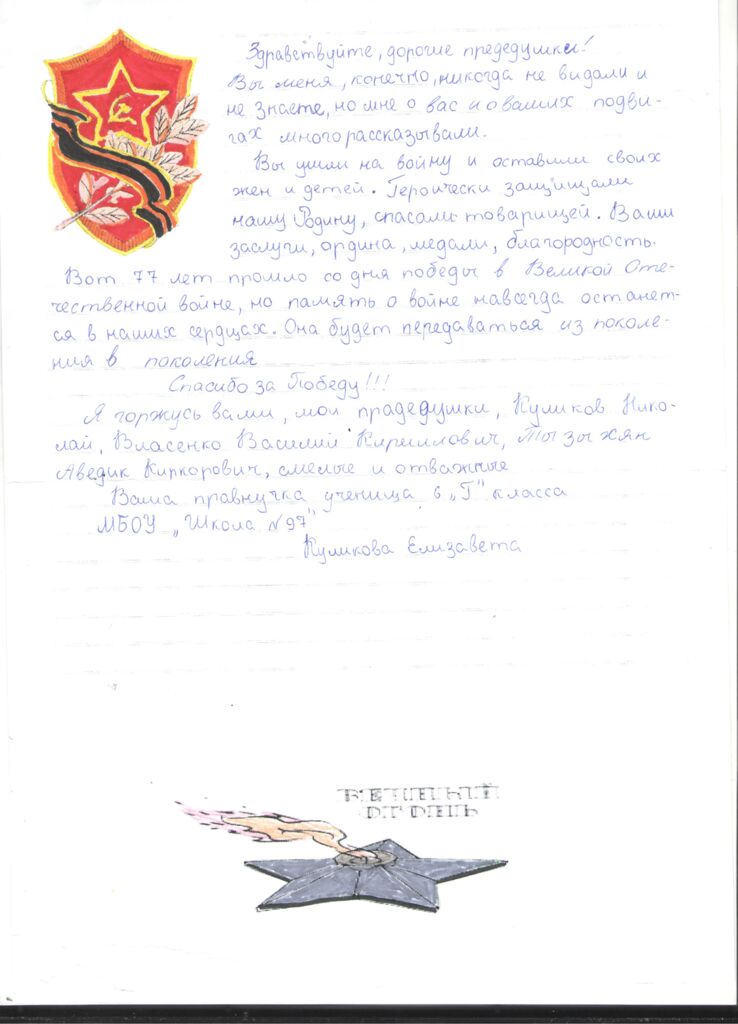 Здравствуйте, дорогие предедушки!
Вы меня, конечно, никогда не видали и
не знаете, но мне о вас и о ваших подви-
гах много рассказывали.
Вы ушли на войну и оставили своих
жен и детей. Героически защищали
нашу Родину, спасали товарищей. Ваши
заслуги, ордина, медали, благородность.
Вот 77 лет прошло со дня победы в Великой Оте-
чественной войне, но память о войне навсегда останет-
ся в наших сердцах. Она будет передаваться из поколе-
ния в поколения
Спасибо за Победу!!!
Я горжусь вами, мои прадедушки, Куликов Нико-
лай, Власенко Василий Кириллович, Тызыхян
Аведик Киркорович, смелые и отважные
Ваша правнучка ученица 6 „Г" класса
МБОУ „Школа №97"
Куликова Елизавета
ВЕЧНЫЙ
ОГОНЬ